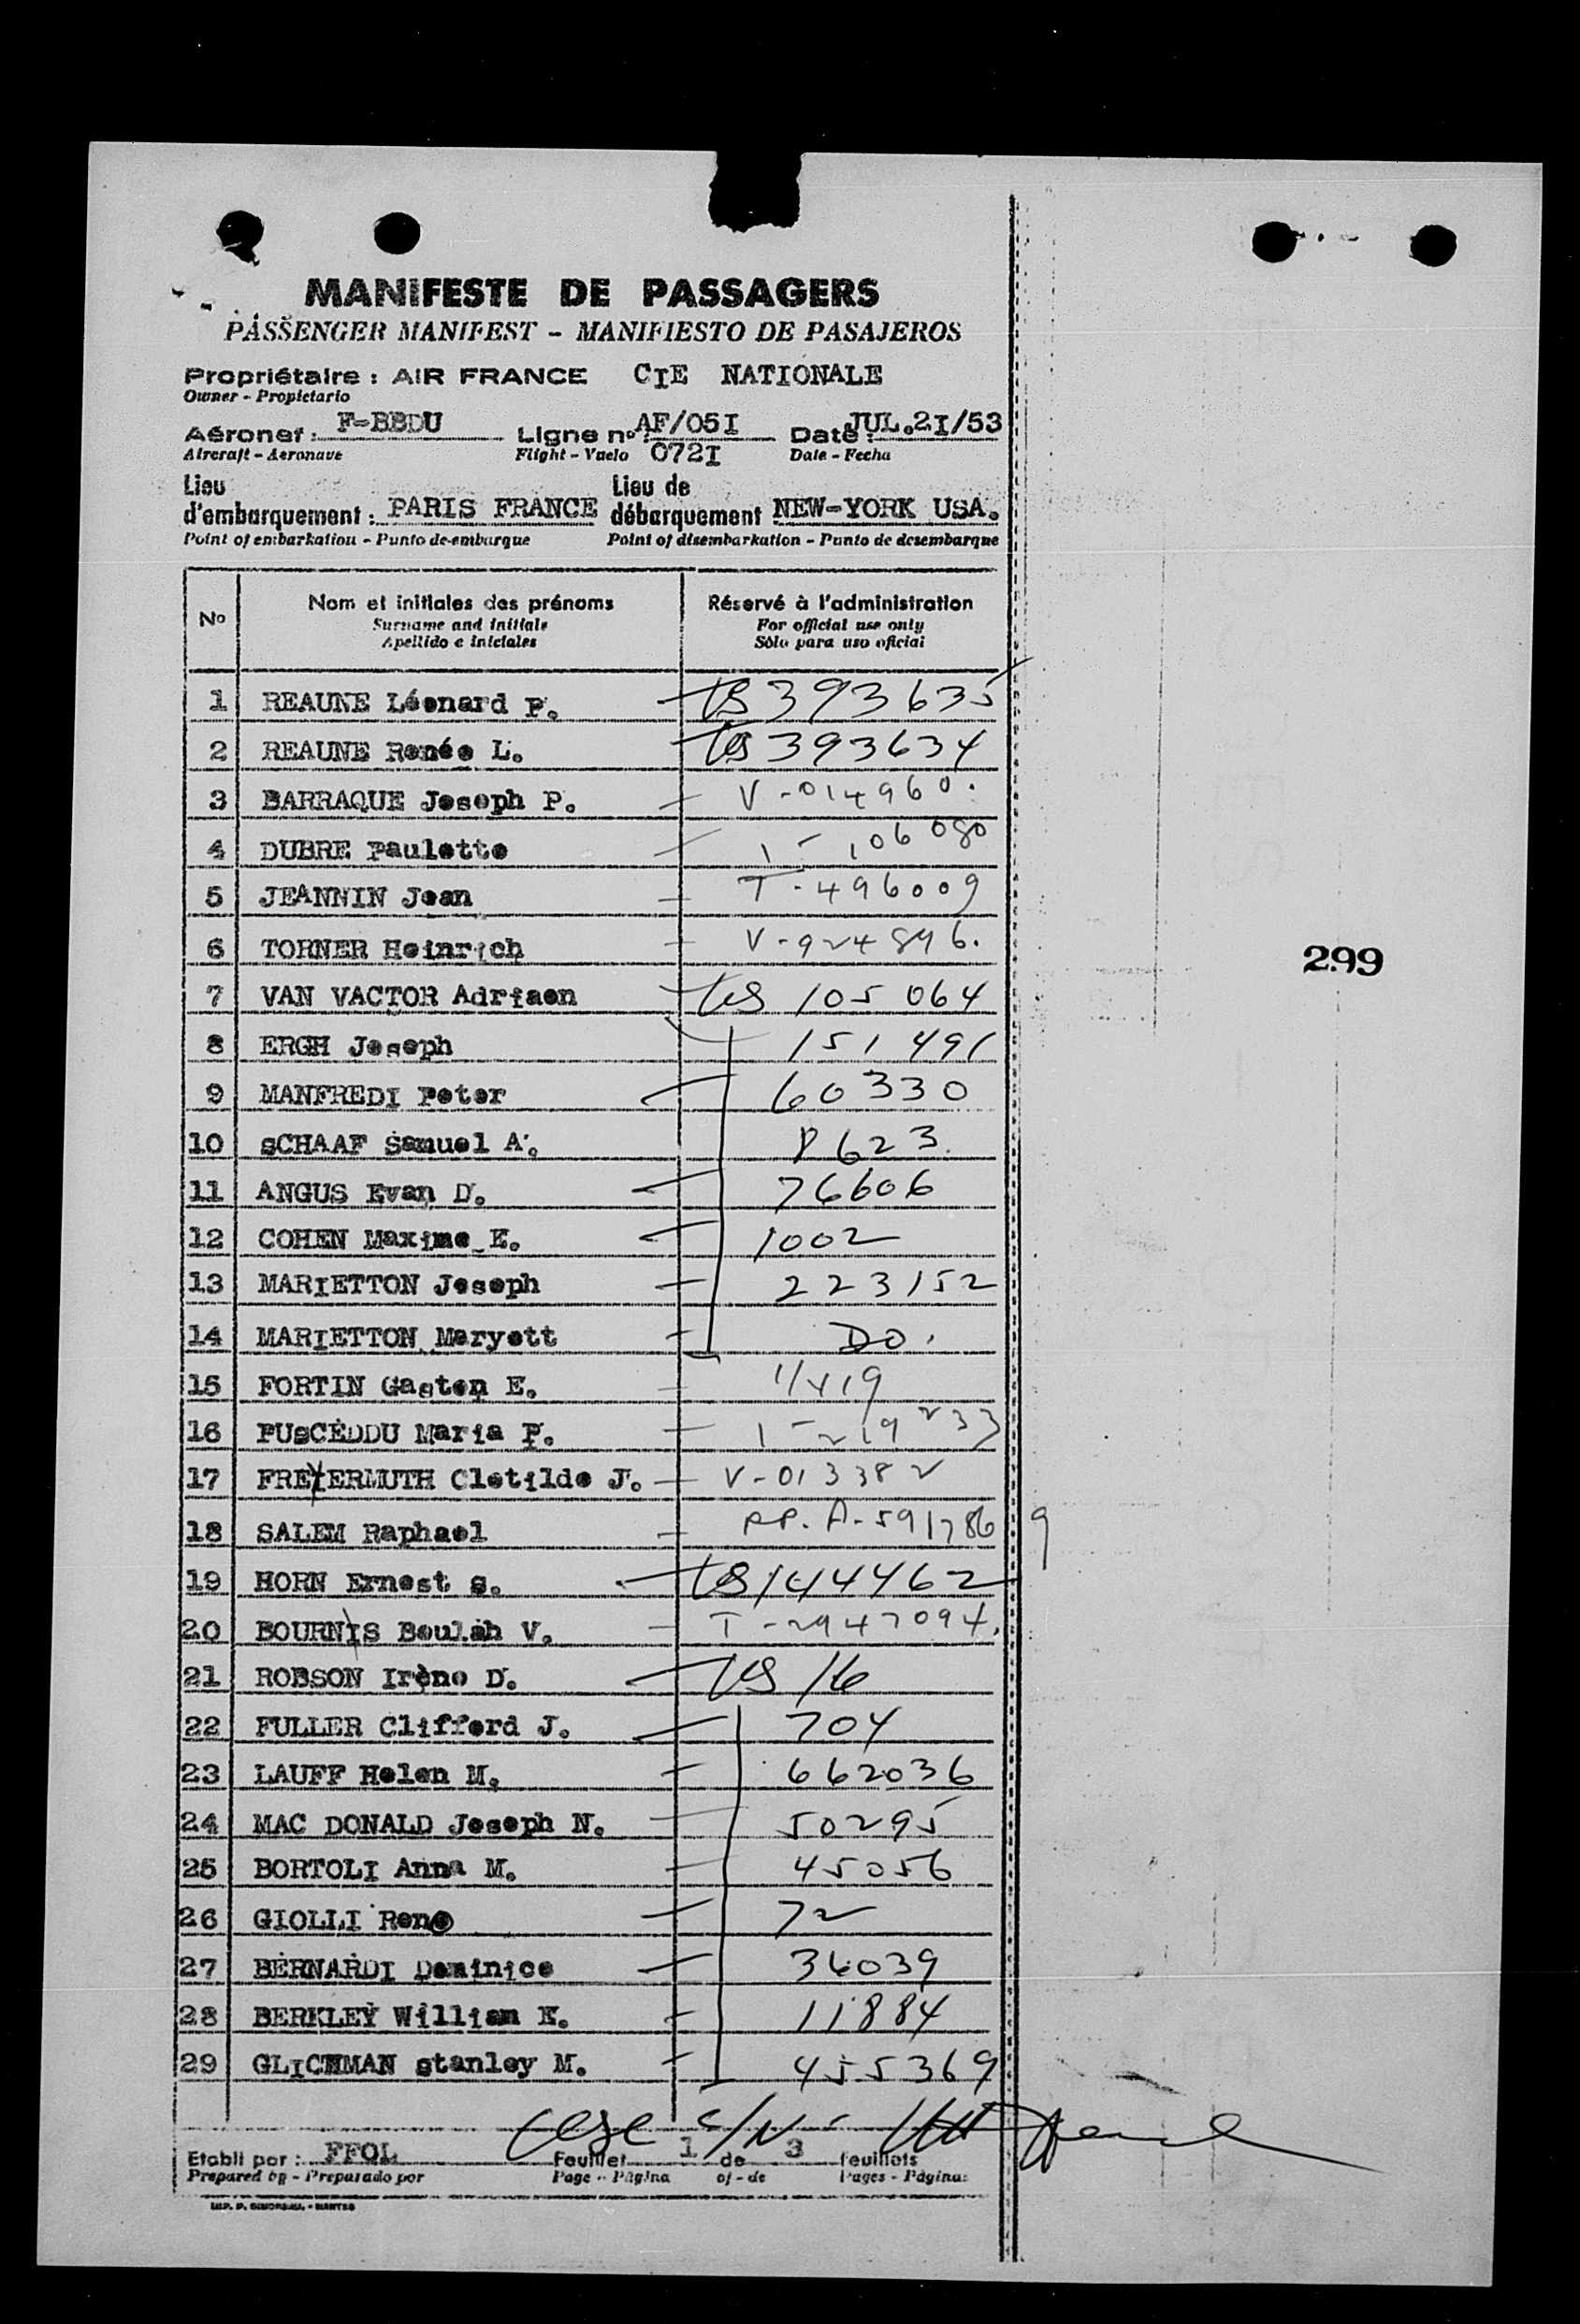 MANIFESTE DE PASSAGERS
PASSENGER MANIFEST - MANIFIESTO DE PASAJEROS
Propriétaire : AIR FRANCE CIE NATIONALE
Owner - Propietario
Aéronef : F-BBDU Ligne n° : AF/05I Date : JUL.2I/53
Aircraft - Aeronave Flight - Vuelo 072I Date - Fecha
Lieu d'embarquement : PARIS FRANCE Lieu de débarquement NEW-YORK USA.
Point of embarkation - Punto de embarque Point of disembarkation - Punto de desembarque
No Nom et initiales des prénoms Réservé à l'administration
Surname and initials For official use only
Apellido e iniciales Sólo para uso oficial
1 REAUNE Léonard P. US 393635
2 REAUNE Renée L. US 393634
3 BARRAQUE Joseph P. V-014960.
4 DUBRE Paulette 1-106080
5 JEANNIN Jean T-496009
6 TORNER Heinrich V-924896.
299
7 VAN VACTOR Adriaen US 105064
8 ERGH Joseph 151491
9 MANFREDI Peter 60330
10 SCHAAF Samuel A. 8623.
11 ANGUS Evan D. 76606
12 COHEN Maxime E. 1002
13 MARIETTON Joseph 223152
14 MARIETTON Maryett DO.
15 FORTIN Gaston E. 11419
16 PUSCEDDU Maria P. 1-219233
17 FREYERMUTH Clotilde J. V-013382
18 SALEM Raphael PP. A-591786 9
19 HORN Ernest S. US 144462
20 BOURNIS Beulah V. T-2947094.
21 ROBSON Irène D. US 16
22 FULLER Clifford J. 704
23 LAUFF Helen M. 662036
24 MAC DONALD Joseph N. 50295
25 BORTOLI Anna M. 45056
26 GIOLLI Reno 72
27 BERNARDI Dominice 36039
28 BERKLEY William E. 11884
29 GLICHMAN Stanley M. 455369
Etabli par : FFOL Feuillet 1 de 3 feuillets
Prepared by - Preparado por Page - Página of - de Pages - Páginas